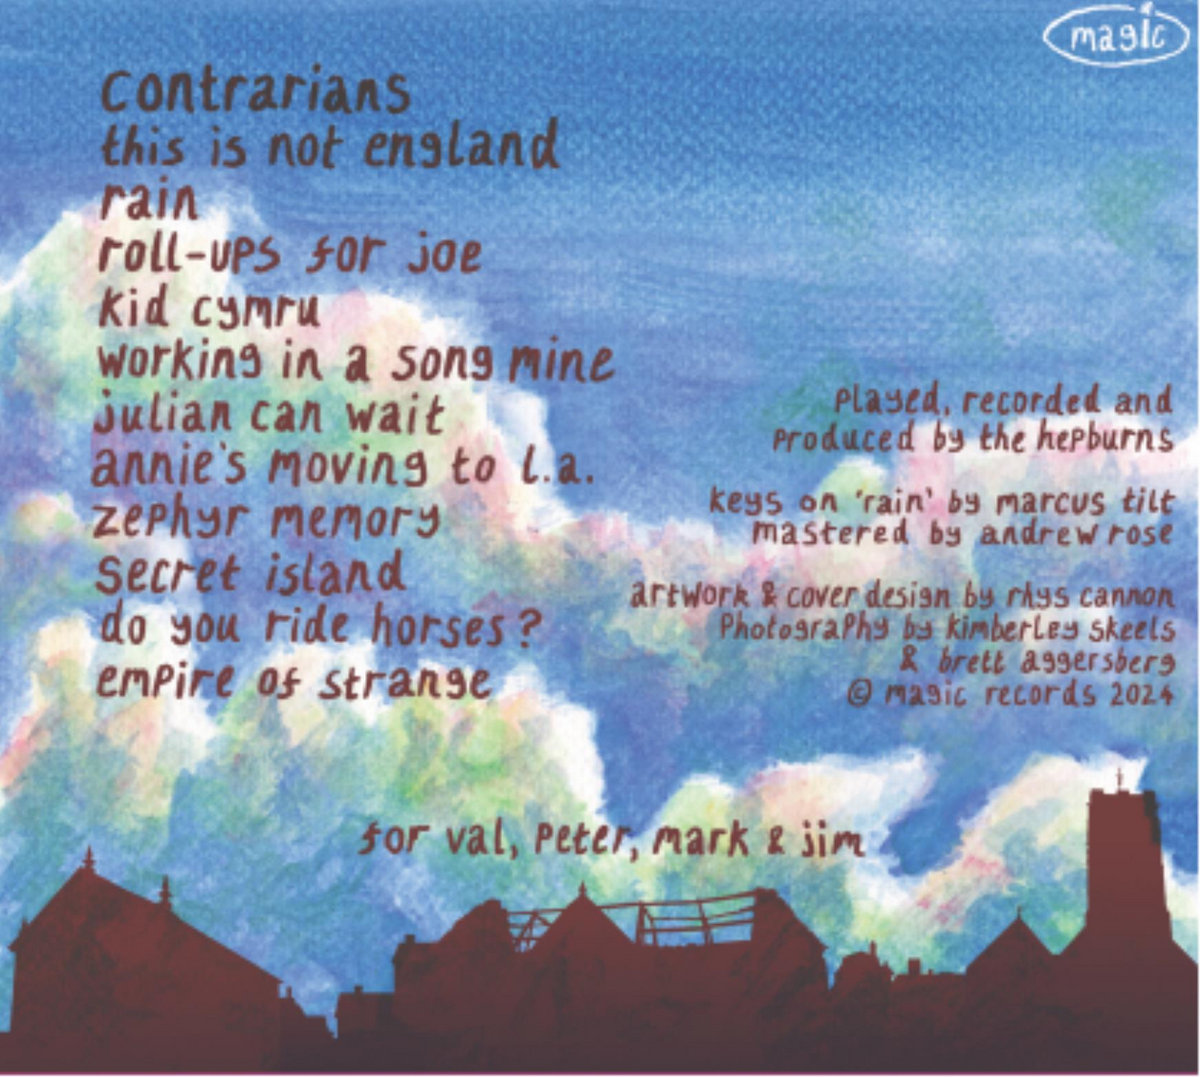 magic
contrarians
this is not england
rain
roll-ups for joe
kid cymru
working in a song mine
julian can wait
annie's moving to l.a.
zephyr memory
secret island
do you ride horses?
empire of strange
played, recorded and
produced by the hepburns
keys on 'rain' by marcus tilt
mastered by andrew rose
artwork & cover design by rhys cannon
photography by kimberley skeels
& brett aggersberg
© magic records 2024
for val, peter, mark & jim